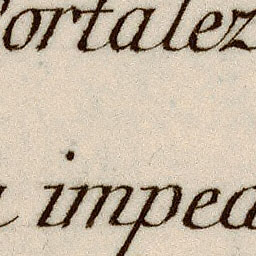 Fortalez
a impea